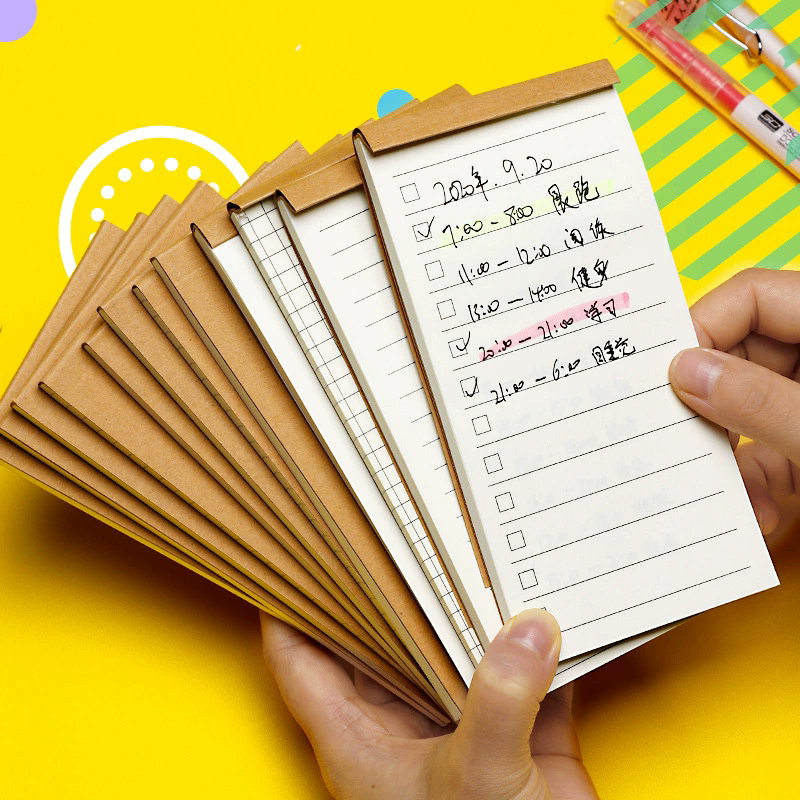 2020年.9.20
7:00-8:00 晨跑
11:00-12:00 训练
13:00-14:00 健身
20:00-21:00 学习
21:00-6:00 睡觉